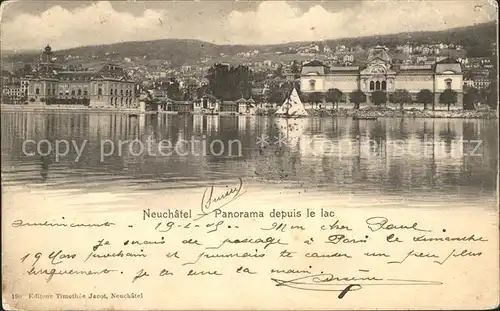 Neuchâtel
(Suisse)
Panorama depuis le lac
19-2-05 Mon cher Paul,
Je serais de passage à Paris le dimanche
19 Mars prochain et pourrais te causer un peu plus
longuement. Je te serre la main
190 Editeur Timothée Jacot, Neuchâtel
copyright delcampe.net